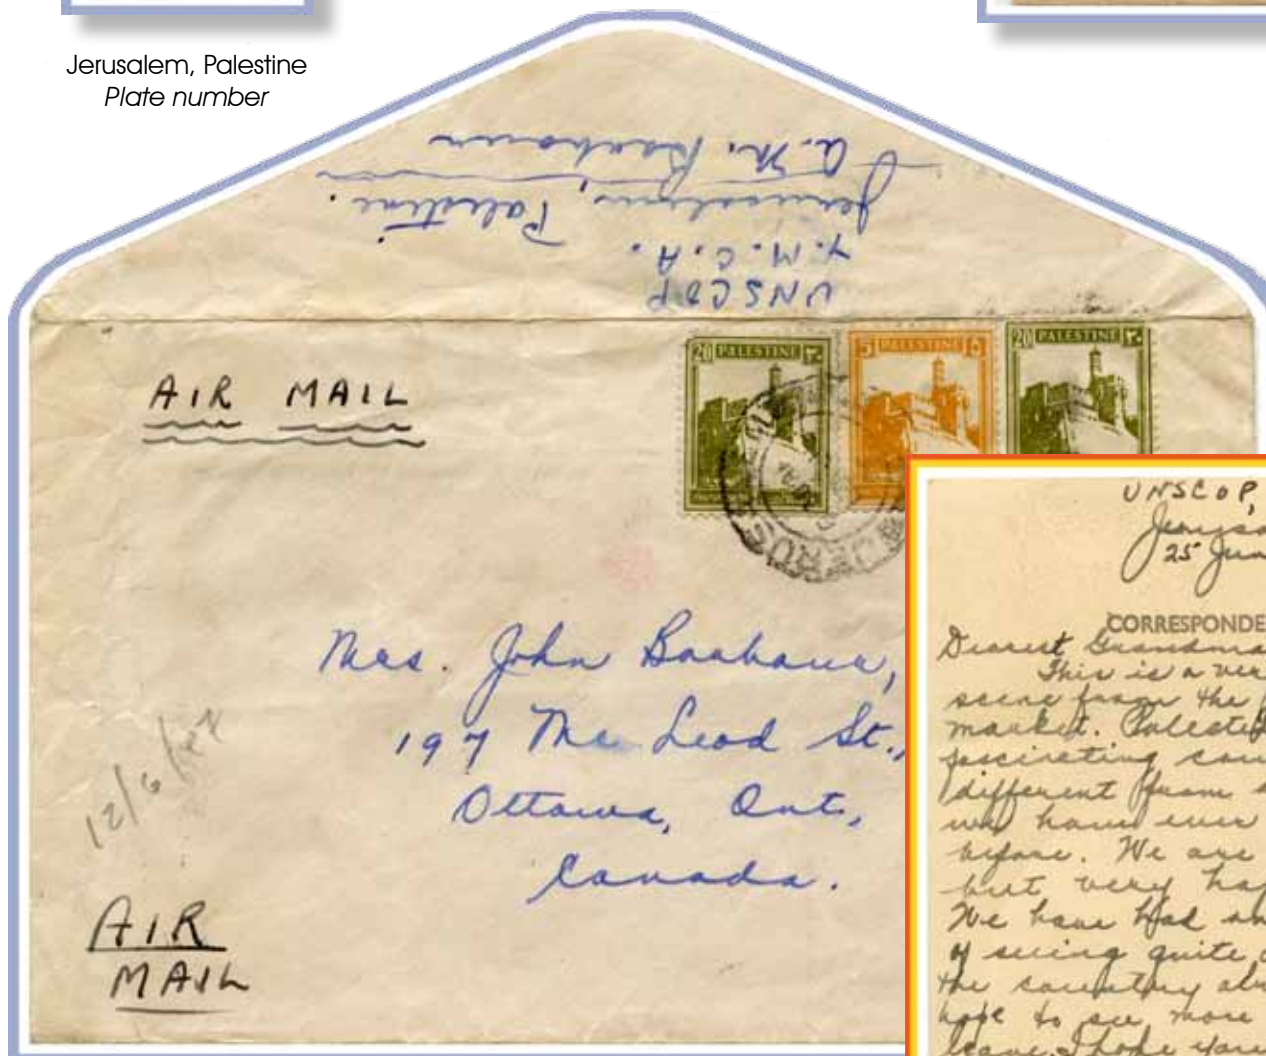 Jerusalem, Palestine
Plate number
A. M.
Jerusalem, Palestine.
Y.M.C.A.
UNSCOP
20 PALESTINE ٢٠
5 PALESTINE ٥
20 PALESTINE ٢٠
JERUS
AIR MAIL
Mrs. John
197 Mc Leod St.,
Ottawa, Ont,
Canada.
12/6/47
AIR
MAIL
UNSCOP,
25 Jun
CORRESPONDE
Dearest Grandma
This is a ver
scene from the
market.
fascinating cou
different from
we have ever
before. We are
but very hap
We have had an
of seeing quite
the country alr
hope to see more
leave. I hope